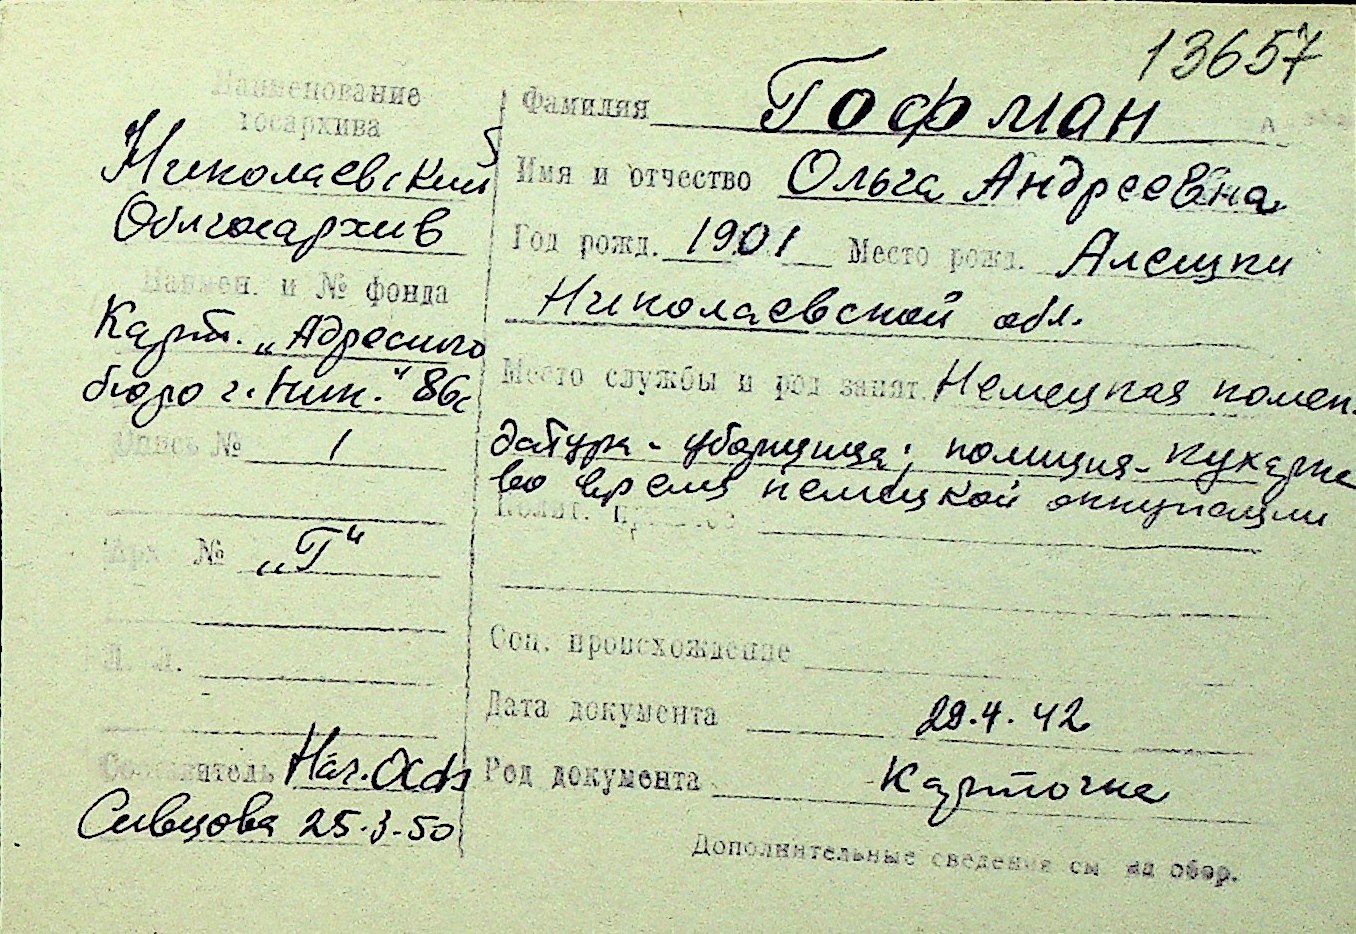 13657
Наименование
госархива
Николаевский
Облгосархив
Наимен. и № фонда
Карт. „Адресного
бюро г. Ник." 86с
Опись № 1
Арх. № „Г"
Л. л.
Составитель Нач. ОСФ
Сивцова 25.3.50
Фамилия Гофман
Имя и отчество Ольга Андреевна
Год рожд. 1901 Место рожд. Алешки
Николаевской обл.
Место службы и род занят. Немецкая комен-
датура - уборщица; полиция - кухарка
во время немецкой оккупации
Соц. происхождение
Дата документа 29.4.42
Род документа Карточка
Дополнительные сведения см на обор.